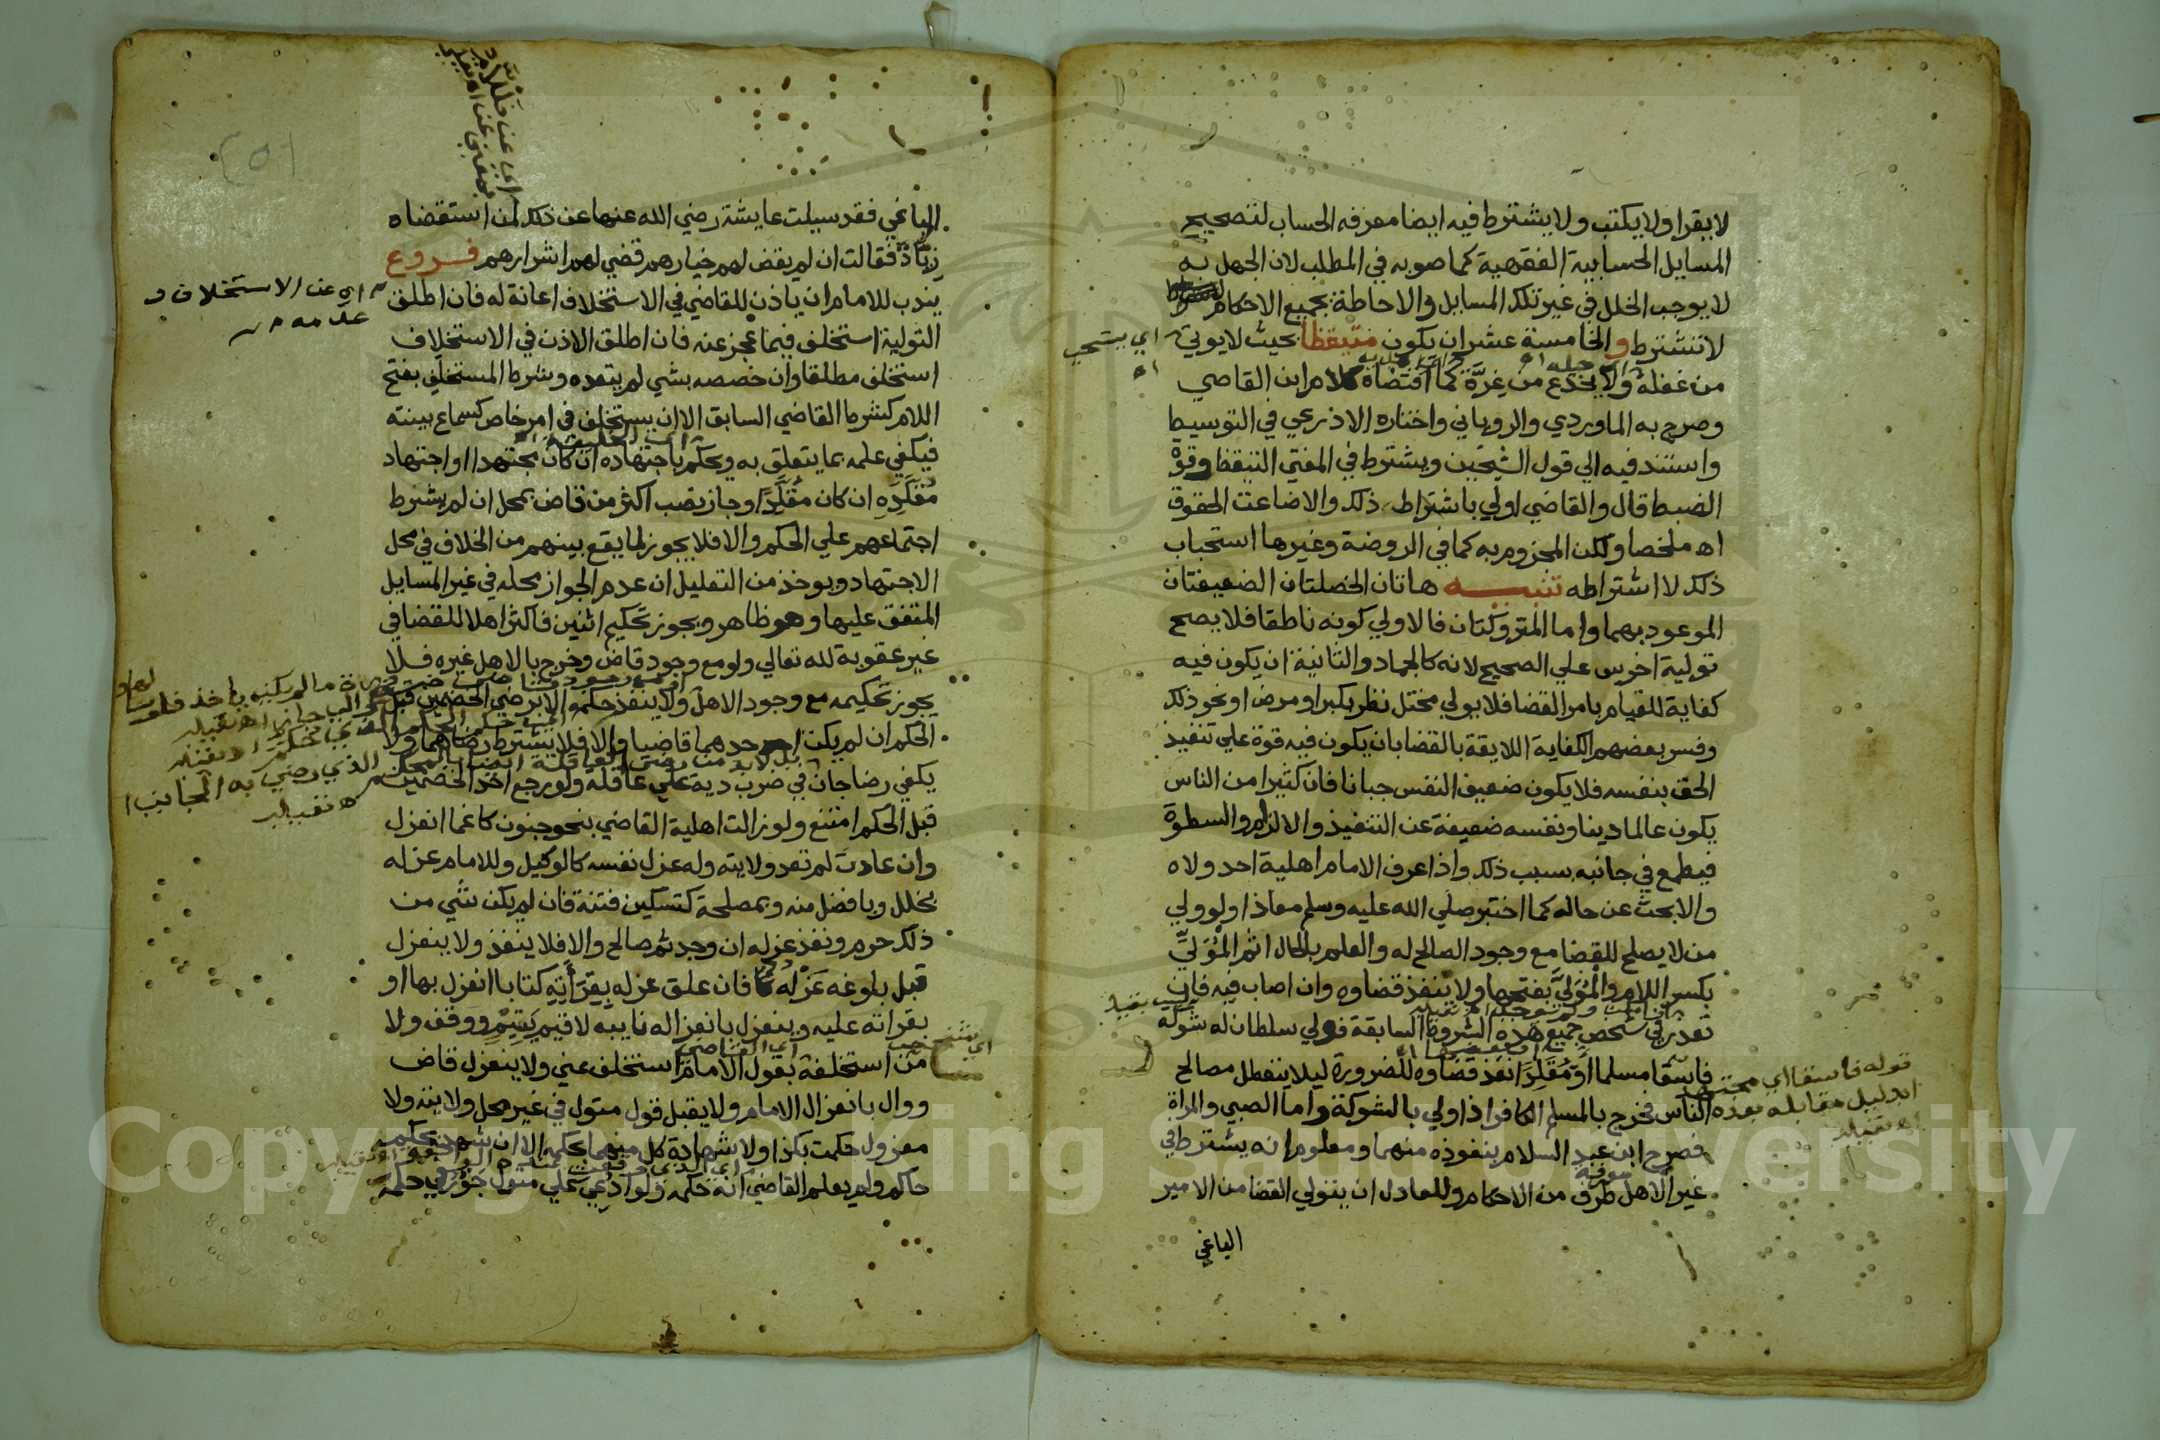 لا يقرا ولا يكتب ولا يشترط فيه ايضا معرفه الحساب لتصحيح
المسايل الحسابية الفقهية كما صوبه في المطلب لان الجهل به
لا يوجب الخلل في غير تلك المسايل والاحاطة بجميع الاحكام
لا تشترط و الخامسة عشر ان يكون متيقظا بحيث لا يوتي
من غفلة ولا يخدع من غرة كما اقتضاه كلام ابن القاصي
وصرح به الماوردي والروياني واختاره الاذرعي في التوسيط
واستند فيه الي قول الشيخين ويشترط في المفتي التيقظ وقوة
الضبط قال والقاضي اولي باشتراط ذلك والا ضاعت الحقوق
اه ملخصا ولكن المجزوم به كما في الروضة وغيرها استحباب
ذلك لا اشتراطه تنبيه هاتان الخصلتان الضعيفتان
الموعود بهما واما المتروكتان فالاولي كونه ناطقا فلا يصح
تولية اخرس علي الصحيح لانه كالجماد والثانية ان يكون فيه
كفاية للقيام بامر القضا فلا يولي مختل نظر بكبر او مرض او نحو ذلك
وفسر بعضهم الكفاية اللايقة بالقضا بان يكون فيه قوة علي تنفيذ
الحق بنفسه فلا يكون ضعيف النفس جبانا فان كثيرا من الناس
يكون عالما دينا ونفسه ضعيفة عن التنفيذ والالزام والسطوة
فيطمع في جانبه بسبب ذلك واذا عرف الامام اهلية احد ولاه
والا بحث عن حاله كما اختبر صلي الله عليه وسلم معاذا ولو ولي
من لا يصلح للقضا مع وجود الصالح له والعلم بالحال اثم المولي
بكسر اللام والمولي بفتحها ولا ينفذ قضاوه وان اصاب فيه فان
تعذر في شخص جميع هذه الشروط السابقة فولي سلطان له شوكة
فاسقا مسلما او مقلدا نفذ قضاوه للضرورة ليلا يتعطل مصالح
الناس فخرج بالمسلم الكافر اذا ولي بالشوكة واما الصبي والمراة
فصرح ابن عبد السلام بنفوذه منهما ومعلوم انه يشترط في
غير الاهل طرف من الاحكام وللعادل ان يتولي القضا من الامير
الباغي
اي يستحب
اه
قوله فاسقا اي
بدليل مقابله بعده
اه تقييد
الباغي فقد سيلت عايشة رضي الله عنها عن ذلك لمن استقضاه
زياد فقالت ان لم يقض لهم خيارهم قضي لهم اشرارهم فروع
يندب للامام ان ياذن للقاضي في الاستخلاف اعانة له فان اطلق
التولية استخلف فيما عجز عنه فان اطلق الاذن في الاستخلاف
استخلف مطلقا وان خصصه بشي لم يتعده وشرط المستخلف بفتح
اللام كشرط القاضي السابق الا ان يستخلف في امر خاص كسماع بينته
فيكفي علمه بما يتعلق به ويحكم باجتهاده ان كان مجتهدا او اجتهاد
مقلده ان كان مقلدا وجاز نصب اكثر من قاض بمحل ان لم يشترط
اجتماعهم علي الحكم والا فلا يجوز لما يقع بينهم من الخلاف في محل
الاجتهاد ويوخذ من التعليل ان عدم الجواز محله في غير المسايل
المتفق عليها وهو ظاهر ويجوز تحكيم اثنين فاكثر اهلا للقضا في
غير عقوبة لله تعالي ولو مع وجود قاض وخرج بالاهل غيره فلا
يجوز تحكيمه مع وجود الاهل ولا ينفذ حكمه الا برضي الخصمين قبل
الحكم ان لم يكن احدهما قاضيا والا فلا يشترط رضاهما ولا
يكفي رضا جان في ضرب دية علي عاقله ولو رجع احد الخصمين
قبل الحكم امتنع ولو زالت اهلية القاضي بنحو جنون كاغما انعزل
وان عادت لم تعد ولايته وله عزل نفسه كالوكيل وللامام عزله
بخلل وبافضل منه وبمصلحة كتسكين فتنة فان لم يكن شي من
ذلك حرم ونفذ عزله ان وجد ثم صالح والا فلا ينفذ ولا ينعزل
قبل بلوغه عزله فان علق عزله بقرأته كتابا انعزل بها او
بقراته عليه وينعزل بانعزاله نايبه لا قيم يتيم ووقف ولا
من استخلفه بقول الامام استخلف عني ولا ينعزل قاض
ووال بانعزال الامام ولا يقبل قول متول في غير محل ولايته ولا
معزول حكمت بكذا ولا شهادة كل منهما بحكمه الا ان شهد بحكم
حاكم ولم يعلم القاضي انه حكمه ولو ادعي علي متول جور في حكمه
اي عن الاستخلاف و
عدمه